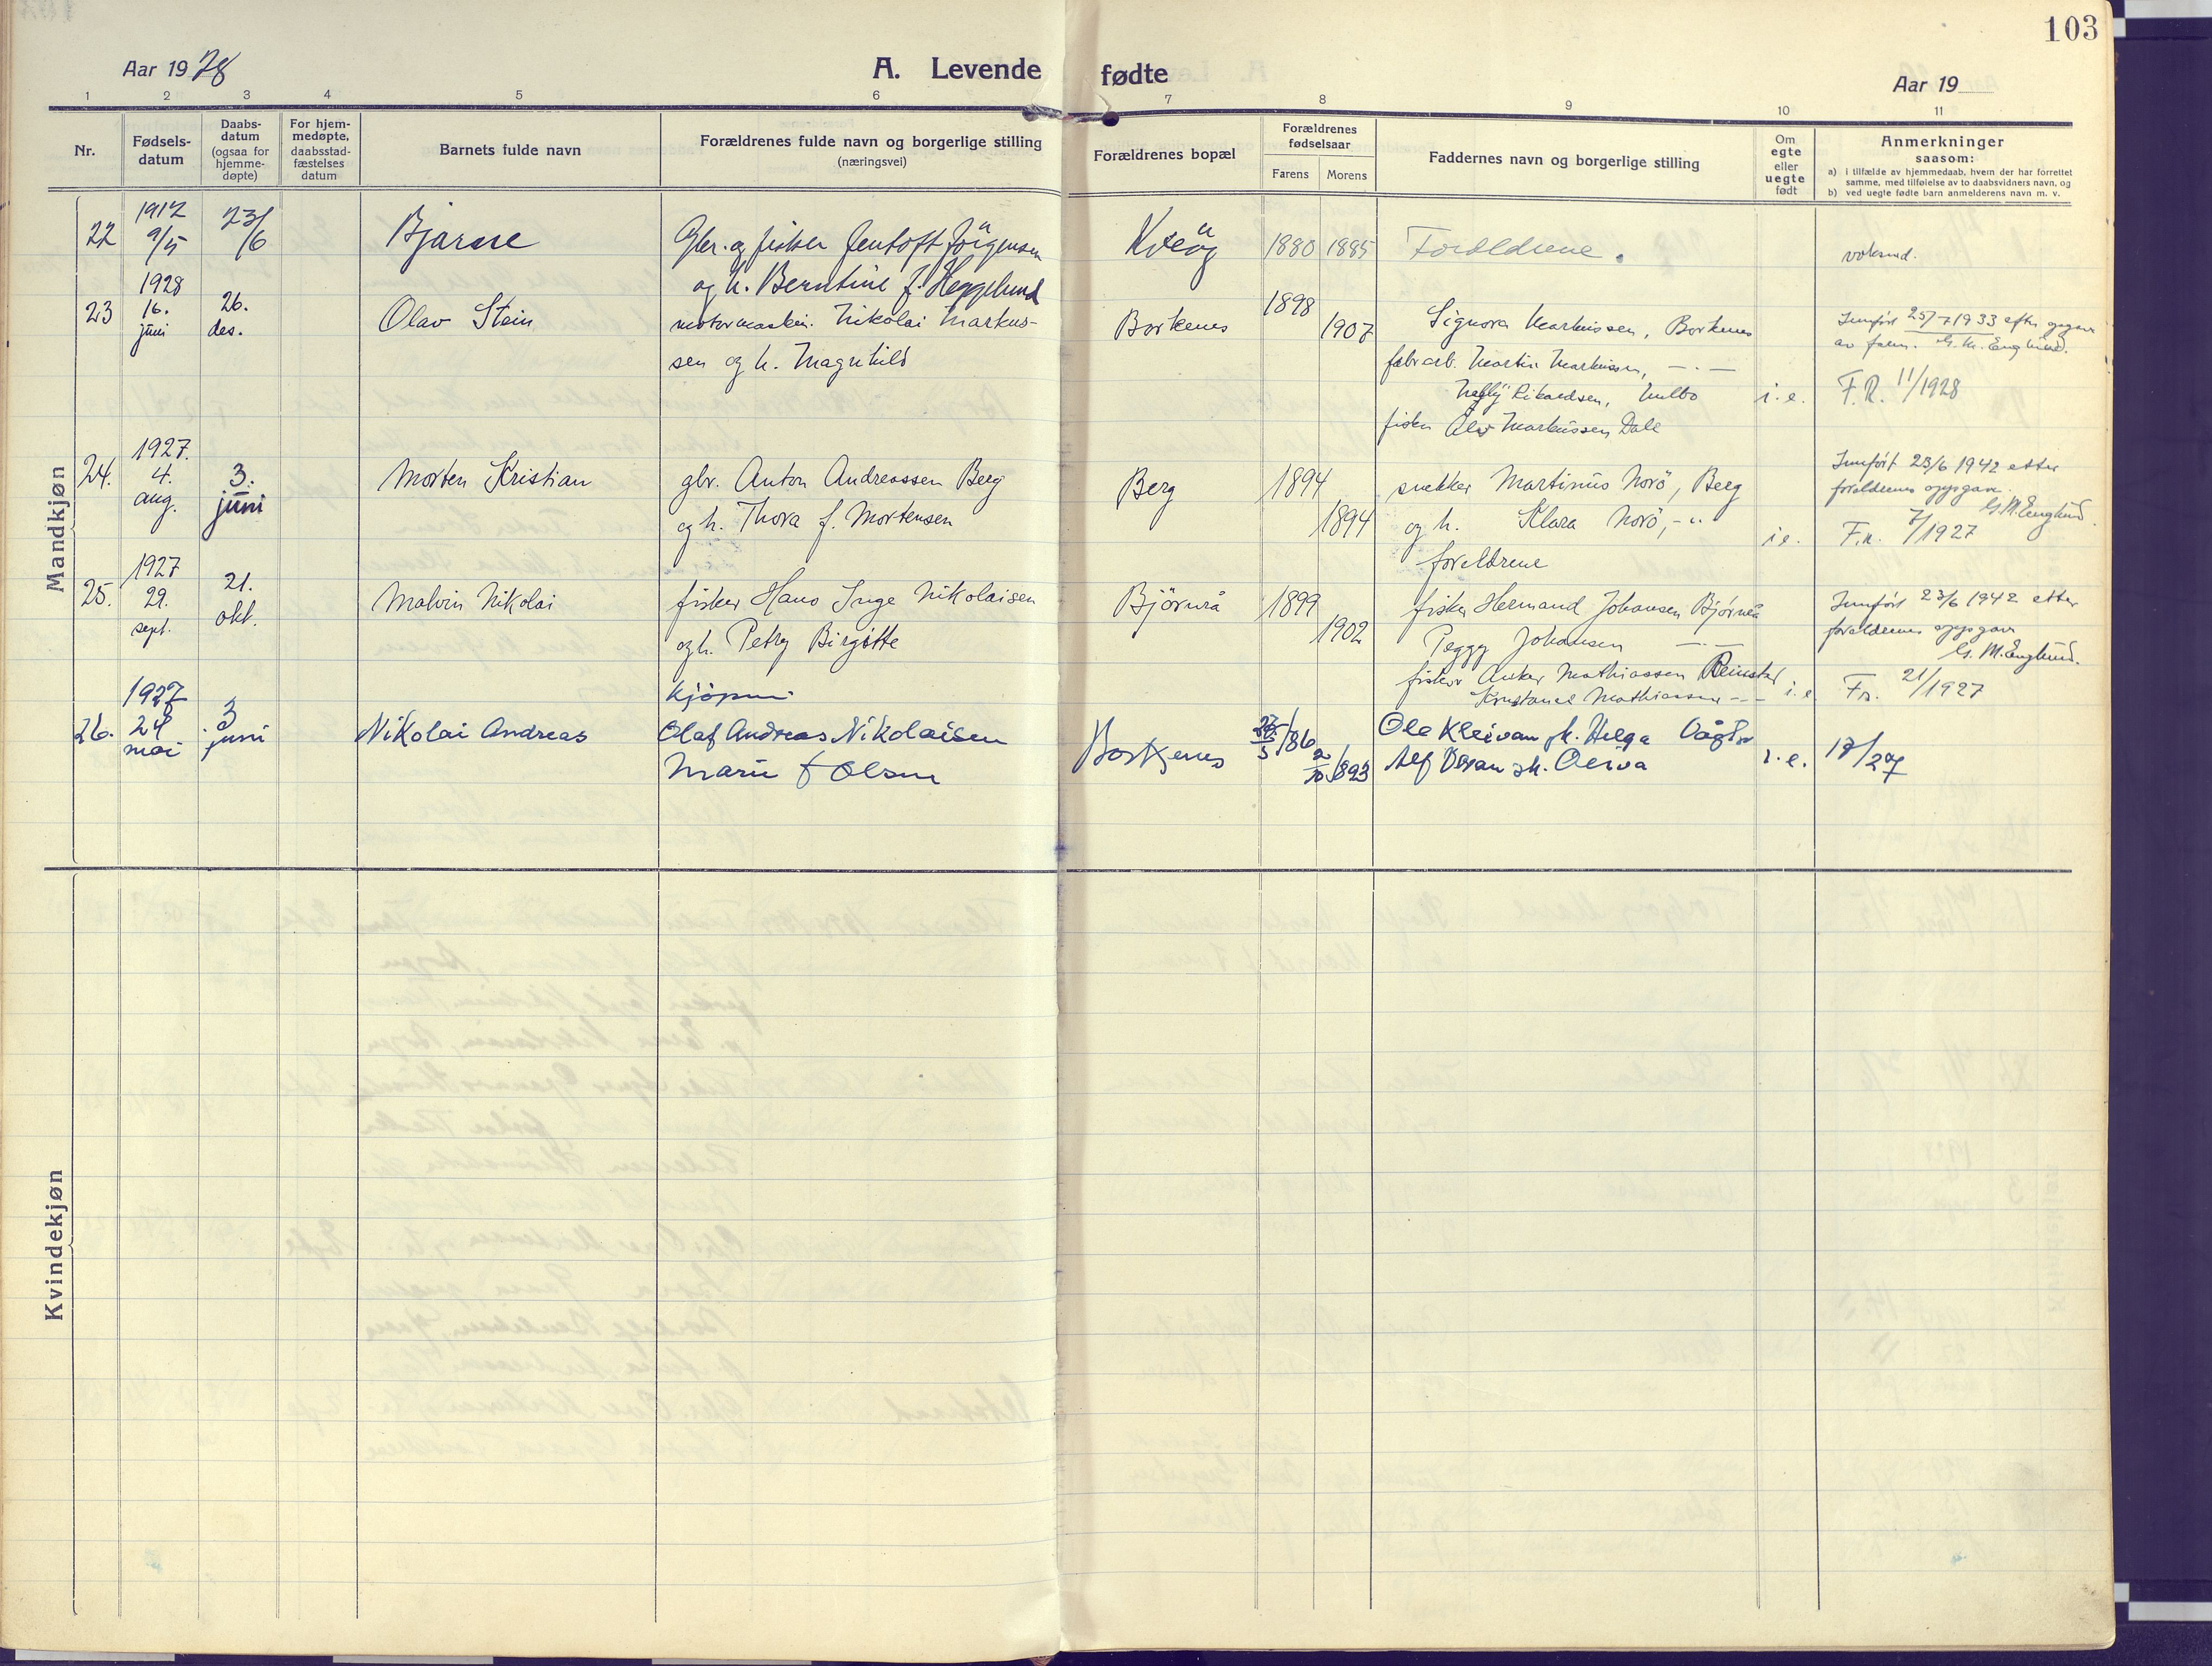 103
Aar 1928
A. Levende fødte
Aar 19
1 2 3 4 5 6 7 8 9 10 11
Nr.
Fødsels-
datum
Daabs-
datum
(ogsaa for
hjemme-
døpte)
For hjem-
medøpte,
daabsstad-
fæstelses
datum
Barnets fulde navn
Forældrenes fulde navn og borgerlige stilling
(næringsvei)
Forældrenes bopæl
Forældrenes
fødselsaar
Farens Morens
Faddernes navn og borgerlige stilling
Om
egte
eller
uegte
født
Anmerkninger
saasom:
a) i tilfælde av hjemmedaab, hvem der har forrettet
samme, med tilføielse av to daabsvidners navn, og
b) ved uegte fødte barn anmelderens navn m. v.
Mandkjøn
22 1912 9/5 23/6 Bjarne
Gbr. og fisker Jentoft Jörgensen
og h. Berntine f. Heggelund
1880 1885 Foreldrene.
voksend.
23 1928 16. juni 26. des. Olav Stein
motormaskin. Nikolai Markus-
sen og h. Magnhild
Borkenes 1898 1907
Signora Markussen, Borkenes
fabr.arb. Martin Markussen, — . —
Rikardsen,
fisker Markussen Dale
i.e.
Innført 25/7 1933 efter opgave
av faren. G. M. Englund.
F.R. 11/1928
24. 1927. 4. aug. 3. juni Morten Kristian
gbr. Anton Andreassen Berg
og h. Thora f. Mortensen
Berg 1894 1894
snekker Martinus Norö, Berg
og h. Klara Norö, - "
foreldrene
i.e.
Innført 23/6 1942 etter
foreldrenes oppgave.
G. M. Englund.
F.r. 7/1927
25. 1927 29. sept. 21. okt. Malvin Nikolai
fisker Hans Inge Nikolaisen
og h. Petry Birgitte
Björnrå 1899 1902
fisker Hermand Johansen Bjørnrå
Peggy Johansen — . —
fisker Anker Mathiassen Reinstad
Konstanse Mathiassen - — -
i.e.
Innført 23/6 1942 etter
foreldrenes oppgave
G. M. Englund.
F.r. 21/1927
26. 1927 24 mai 3 juni Nikolai Andreas
Kjöpm.
Olaf Andreas Nikolaisen
Marie f Olsen
Borkenes /86 /893
Ole Kleivan h. Helga
Alf h.
i.e.
17/27
Kvindekjøn